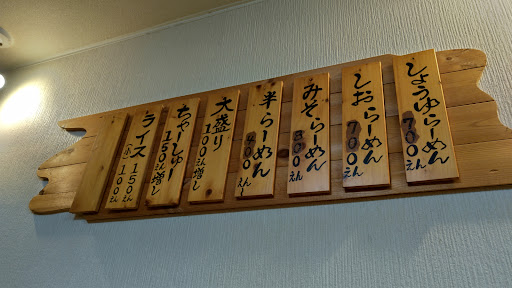 しょうゆらーめん
700えん
しおらーめん
700えん
みそらーめん
800えん
半らーめん
400えん
大盛り
100えん増し
ちゃーしゅー
150えん増し
ライス
150えん
100えん